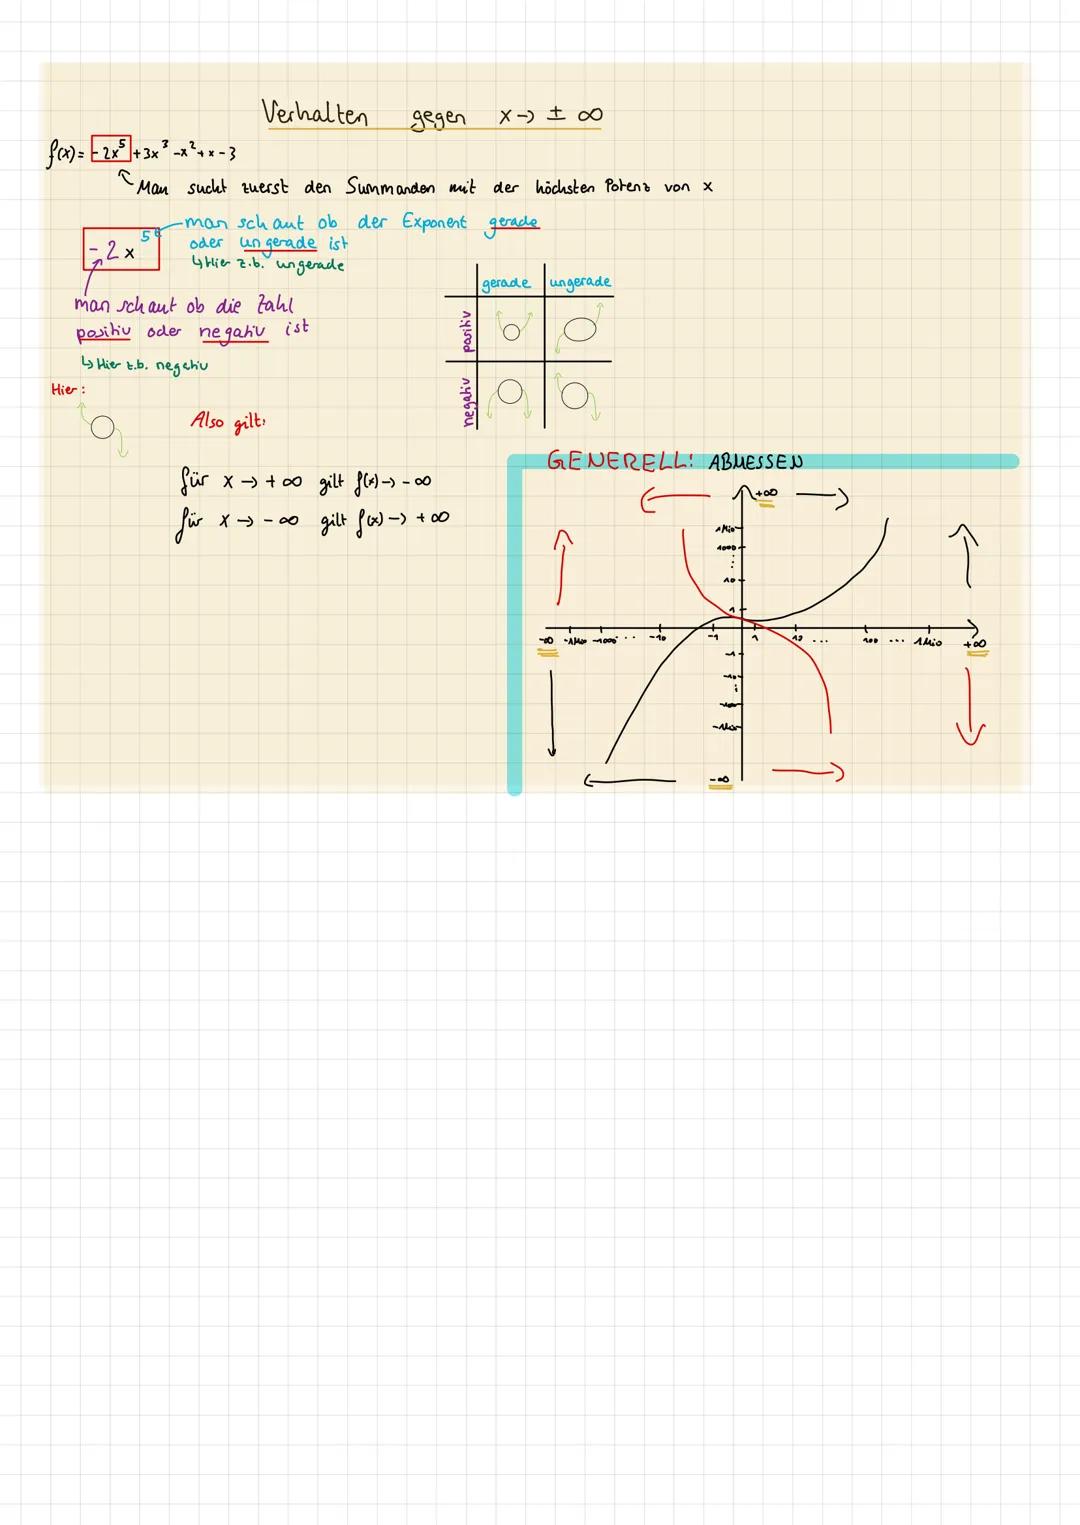 Verhalten gegen x → ± ∞
f(x) = -2x⁵ + 3x³ - x² + x - 3
Man sucht zuerst den Summanden mit der höchsten Potenz von x
man schaut ob der Exponent gerade
oder ungerade ist
↳ Hier z.b. ungerade
-2x⁵
man schaut ob die Zahl
positiv oder negativ ist
↳ Hier z.b. negativ
gerade ungerade
positiv
negativ
Hier:
Also gilt:
für x → + ∞ gilt f(x) → - ∞
für x → - ∞ gilt f(x) → + ∞
GENERELL: ABMESSEN
+∞
1 Mio
1000
10
1
-∞ -1Mio -1000 ... -10 -1 1 10 ... 100 ... 1 Mio +∞
-1
-10
-1Mio
-∞